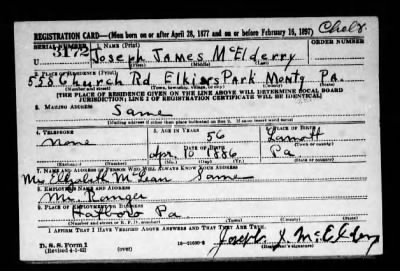 REGISTRATION CARD—(Men born on or after April 28, 1877 and on or before February 16, 1897)
SERIAL NUMBER 1. NAME (Print) ORDER NUMBER
U 3172 Joseph James McElderry
(First) (Middle) (Last)
2. PLACE OF RESIDENCE (Print)
558 Church Rd Elkins Park Montg Pa.
(Number and street) (Town, township, village, or city) (County) (State)
[THE PLACE OF RESIDENCE GIVEN ON THE LINE ABOVE WILL DETERMINE LOCAL BOARD
JURISDICTION; LINE 2 OF REGISTRATION CERTIFICATE WILL BE IDENTICAL]
3. MAILING ADDRESS
Same
[Mailing address if other than place indicated on line 2. If same insert word same]
4. TELEPHONE 5. AGE IN YEARS 6. PLACE OF BIRTH
none 56 Lamott
DATE OF BIRTH (Town or county)
Apr 10 1886 Pa
(Mo.) (Day) (Yr.) (State or country)
7. NAME AND ADDRESS OF PERSON WHO WILL ALWAYS KNOW YOUR ADDRESS
Mrs Elizabeth McLean Same
8. EMPLOYER'S NAME AND ADDRESS
Mr. Ranger
9. PLACE OF EMPLOYMENT OR BUSINESS
Hatboro Pa
(Number and street or R. F. D. number) (Town) (County) (State)
I AFFIRM THAT I HAVE VERIFIED ABOVE ANSWERS AND THAT THEY ARE TRUE.
D. S. S. Form 1
(Revised 4-1-42) (over) Joseph J. McElderry
(Registrant's signature)